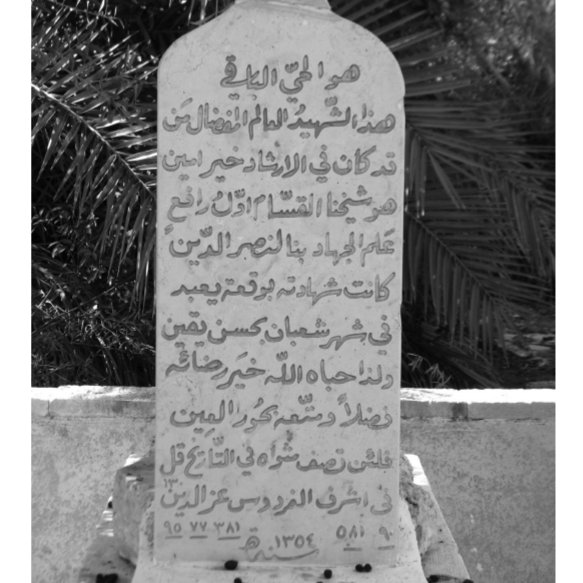 هو الحيّ الباقي
هذا الشّهيدُ العالم المفضال مَن
قد كان في الارشاد خير امين
هو شيخنا القسّام اوّلُ رافعٍ
عَلم الجهاد بنا لنصر الدّين
كانت شهادته بوقعة يعبد
في شهر شعبان بحسن يقين
ولذا حباه اللّه خيَر رضائه
فضلاً ومتّعه بحُور العِين
فلئن تصف مثواه في التّاريخ قل
في اشرف الفردوس عز الدين ١٣
٩٠ ٥٨١ ٣٨١ ٧٧ ٩٥
سنة ١٣٥٤ هـ